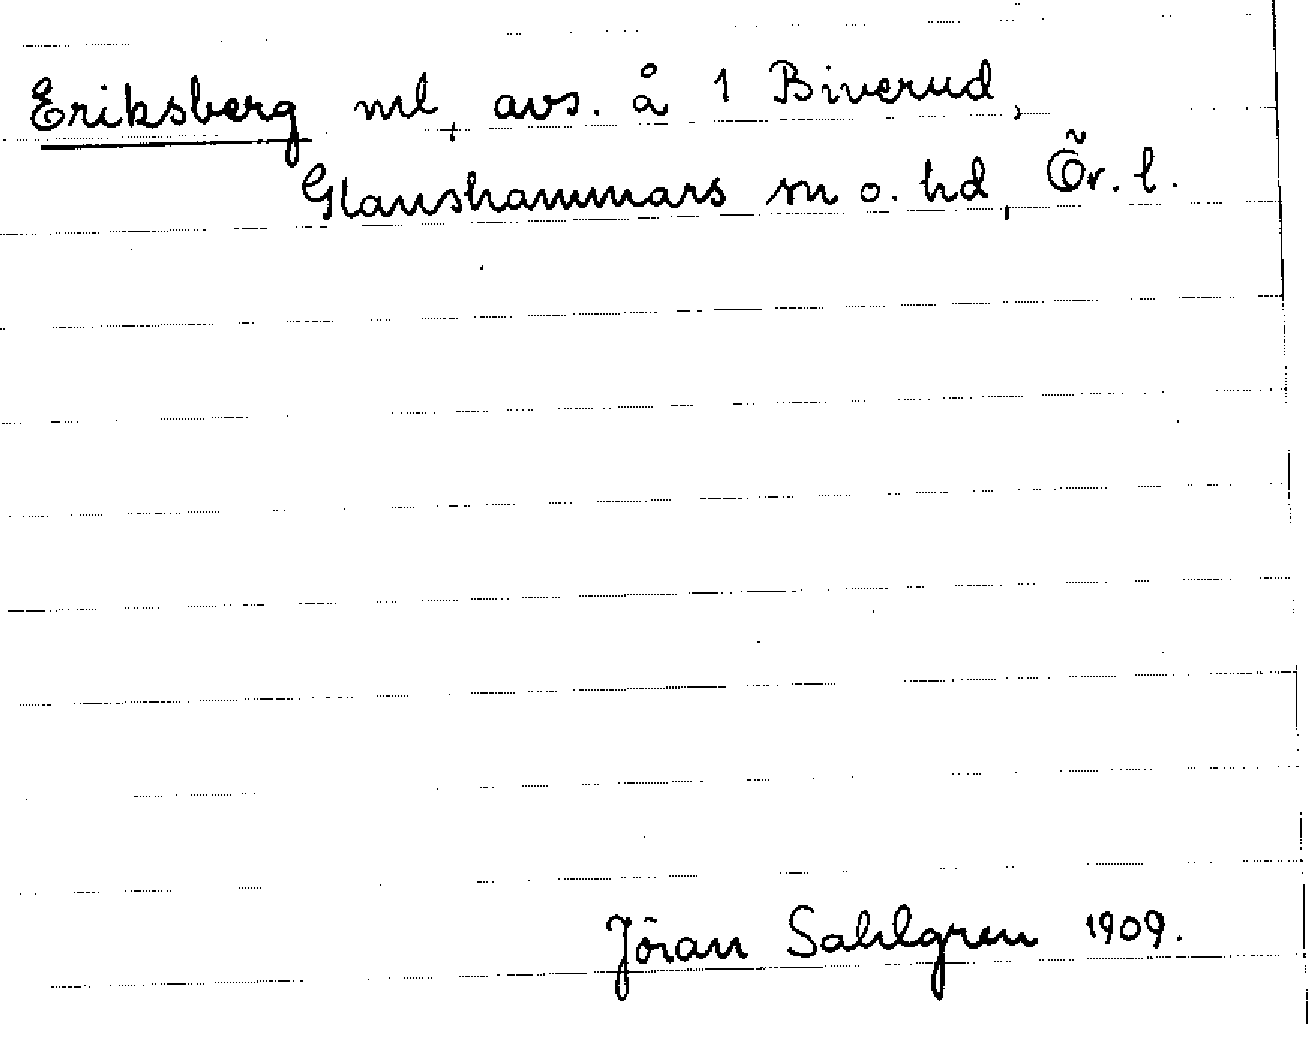 Eriksberg ml, avs. å 1 Biverud,
Glanshammars sn o. hd, Ör. l.
Jöran Sahlgren 1909.